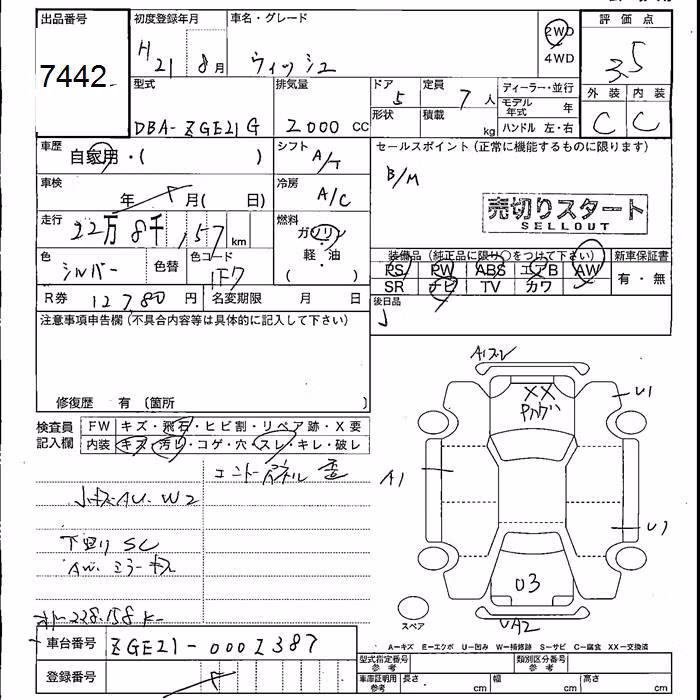 出品番号
7442
初度登録年月
H21 8月
車名・グレード
ウィッシュ
2WD
4WD
評価点
3.5
型式
DBA-ZGE21G
排気量
2000 cc
ドア
5
形状
定員
7人
積載
kg
ディーラー・並行
モデル年式 年
ハンドル 左・右
外装 内装
C C
車歴
自家用・( )
シフト
A/T
セールスポイント(正常に機能するものに限ります)
B/M
売切りスタート
SELLOUT
車検
年 月( 日)
冷房
A/C
走行
22万8千157km
燃料
ガソリン
・
軽・油
( )
色
シルバー
色替
色コード
1F7
装備品(純正品に限り○をつけて下さい)
PS PW ABS エアB AW
SR ナビ TV カワ
新車保証書
有・無
R券 12,780円
名変期限 月 日
後日品
注意事項申告欄(不具合内容等は具体的に記入して下さい)
修復歴 有(箇所 )
検査員記入欄
FW キズ・飛石・ヒビ割・リペア跡・X要
内装 キズ・汚れ・コゲ・穴・スレ・キレ・破レ
小キズAU.W2
下廻りSC
AW.ミラーキズ
228.158K
A1
XX
U1
A1
U1
U3
UA2
スペア
A=キズ E=エクボ U=凹み W=補修跡 S=サビ C=腐食 XX=交換済
車台番号
ZGE21-0002387
登録番号
型式指定番号
参考
類別区分番号
参考
車庫証明用
参考
長さ cm 幅 cm 高さ cm